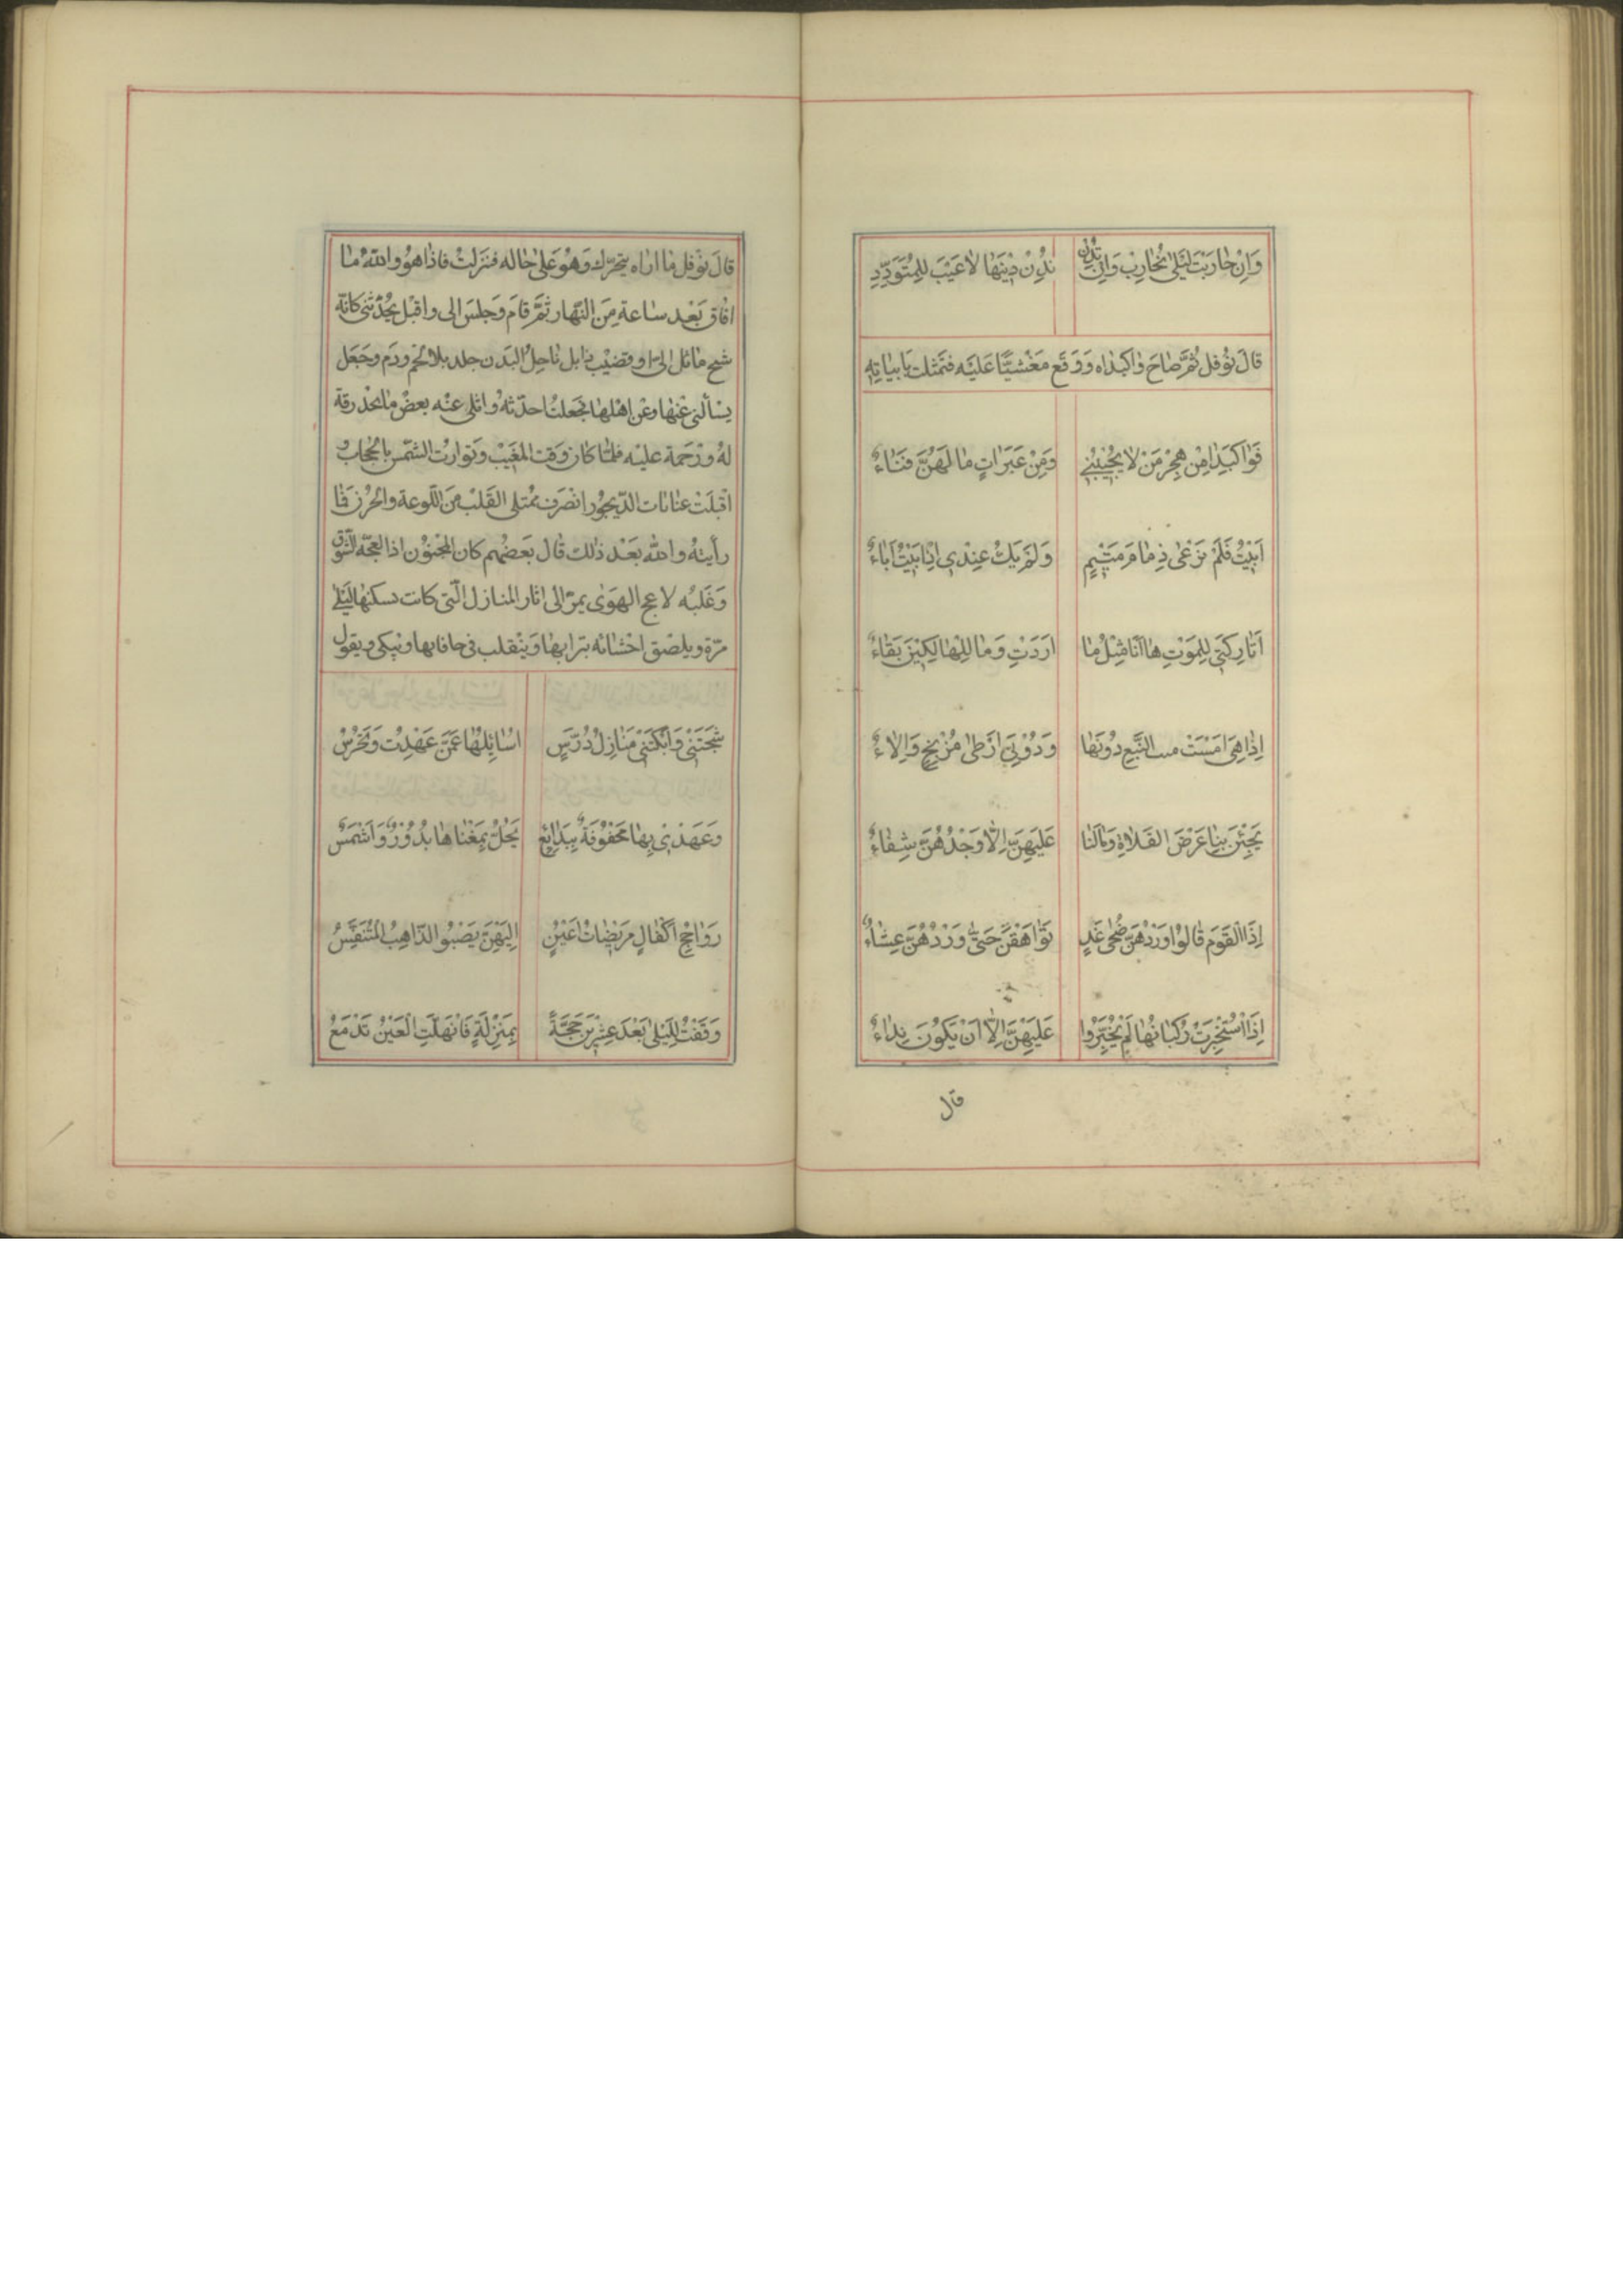 وَاِنْ حَارَبَتْ لَيْلىٰ نُحَارِبْ وَاِنْ تَدِنْ نَدِنْ دِيْنَهَا لَاعَيْبَ لِلْمُتَوَدِّدِ
قالَ نَوْفل ثُمَّ صَاحَ وَاكَبِدَاه وَوَقَع مَغْشِيًّا عَلَيْه فتَمَثلت بِاَبيَاتِهِ
فَوَاكَبَدَا مِنْ هِجْرِ مَنْ لَا يُحِبُّنِى وَمِنْ عَبَرَاتٍ مَا لَهُنَّ فَنَاءُ
اَبَيْتُ فَلَمْ تَرْعَىْ ذِمَامَ مُتَيَّمٍ وَلَمْ يَكُ عِنْدِى اِذْ اَبَيْتُ اَبَاءُ
اَتَارِكَتِى لِلْمَوْتِ هَا اَنَا مِثْلُ مَا اَرَدْتِ وَمَا لِلْهَالِكِيْنَ بَقَاءُ
اِذَا هِىَ اَمْسَتْ النَّبْعِ دُوْنَهَا وَدُوْنِى اَرْطىٰ وَاِلَاءُ
يَجُبْنَ بِنَا عَرْضَ الفَلَاةِ وَمَا لَنَا عَلَيْهِنَّ اِلَّا وَجْدُهُنَّ شِفَاءُ
اِذَا الْقَوْمُ قَالُوْا وِرْدُهُنَّ ضُحىٰ غَدٍ تَوَاهَقْنَ حَتّىٰ وِرْدُهُنَّ عِشَاءُ
اِذَا اسْتُخْبِرَتْ رُكْبَانُهَا لَمْ يُخَبِّرُوْا عَلَيْهِنَّ اِلَّا اَنْ تَكُوْنَ نِدَاءُ
قال
قالَ نَوْفل مَا اراه يتحرّك وَهُوَ عَلىٰ حَاله فنَزَلتُ فَاذَا هو واللّٰه مَا
افَاق بَعْد سَاعة مِنَ النّهار ثمَّ قامَ وَجلسَ الى واقبل يُحدّثنى كانّه
شبح مَائل الى او قضيْب ذابل نَاحِلُ البَدن جلد بلا لحم ودَم وجَعَل
يسْألنى عَنهَا وعَن اهْلها فجَعلتُ احدّثهُ واتلى عنْه بعضْ مَا يجد رقة
لهُ ورَحْمة عليْه فلمّا كان وَقت المغيْب وتوارت الشمس بالحجاب و
اقبلَتْ الدّيجور انصَرف ممتلى القَلبْ منَ اللّوعة والحُزن فَمَا
رأيتهُ واللّٰه بَعْد ذٰلك قال بعَضهُم كان المجنوُن اذا لعجّه الشوق
وَغَلبُه لاعج الهوَى يمرّ الى اثار المنازل الّتى كانت تسكنهَا ليلى
مرّة ويلصْق احْشائه بترابهَا ويَتقلب فى حافاتها ويبكى ويقول
شَجَتْنِىْ وَاَبْكَتْنِىْ مَنَازِلُ دُرَّسٍ اُسَائِلُهَا عَمَّنْ عَهِدْتُ وَتَخْرُسُ
وَعَهْدِىْ بِهَا مَحْفُوْفَةً بِبَدَائِعٍ يَحُلُّ بِمَغْنَاهَا بُدُوْرٌ وَاَشْمُسُ
رَوَاجِحِ اَكْفَالٍ مَرِيْضَاتِ اَعْيُنٍ اِلَيْهِنَّ يَصْبُوا الذَّاهِبُ الْمُتَنَفِّسُ
وَقَفْتُ لِلَيْلىٰ بَعْدَ عِشْرِيْنَ حِجَّةً بِمَنْزِلَةٍ فَانْهَلَّتِ الْعَيْنُ تَدْمَعُ